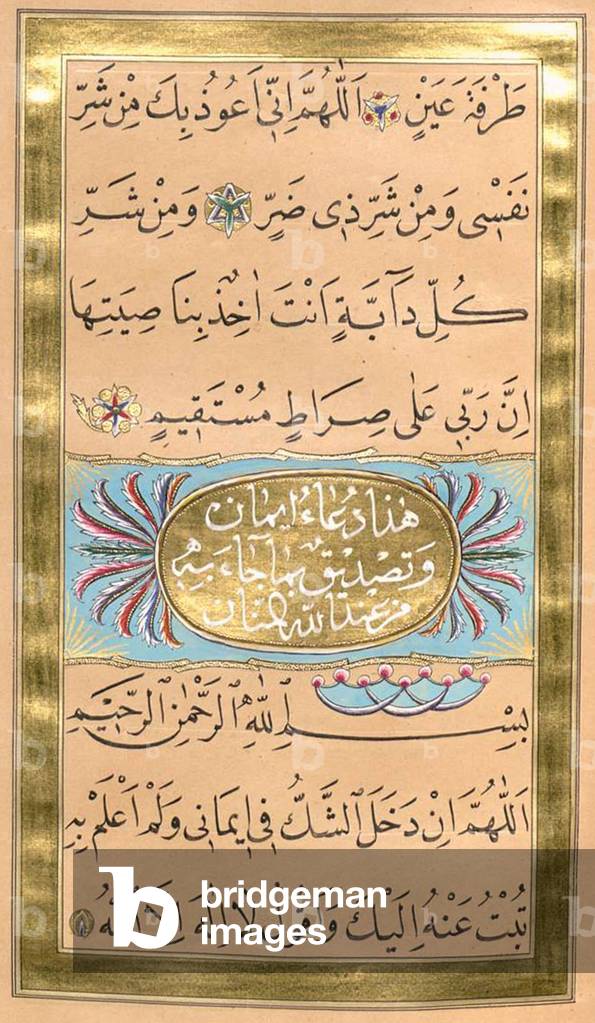 طَرْفَةَ عَيْنٍ اَللّٰهُمَّ اِنّٖى اَعُوذُ بِكَ مِنْ شَرِّ
نَفْسٖى وَمِنْ شَرِّ ذٖى ضَرٍّ وَمِنْ شَرِّ
كُلِّ دَآبَّةٍ اَنْتَ اٰخِذٌ بِنَا صِيَتِهَا
اِنَّ رَبّٖى عَلٰى صِرَاطٍ مُسْتَقٖيمٍ
هٰذَا دُعَاءُ اٖيمَان
وَتَصْدٖيقٌ بِمَا جَاءَ بِهٖ
مِنْ عِنْدِ اللّٰه المَنَّان
بِسْــــمِ اللّٰهِ الرَّحْمٰنِ الرَّحٖيمِ
اَللّٰهُمَّ اِنْ دَخَلَ الشَّكُّ فٖى اٖيمَانٖى وَلَمْ اَعْلَمْ بِهٖ
تُبْتُ عَنْهُ اِلَيْكَ
bridgeman
images